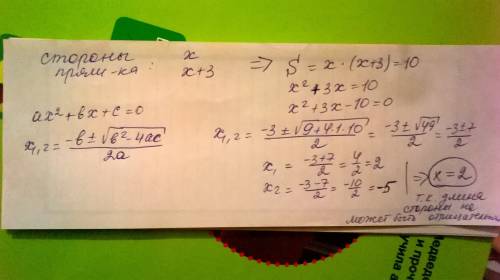 стороны
прям-ка: x
x+3
=> S = x · (x+3) = 10
x² + 3x = 10
x² + 3x - 10 = 0
ax² + bx + c = 0
x₁,₂ = -b ± √b² - 4ac / 2a
x₁,₂ = -3 ± √9+4·1·10 / 2 = -3 ± √49 / 2 = -3 ± 7 / 2
x₁ = -3+7 / 2 = 4/2 = 2
x₂ = -3-7 / 2 = -10/2 = -5
=> x = 2
т.к. длина
стороны не
может быть отрицательн